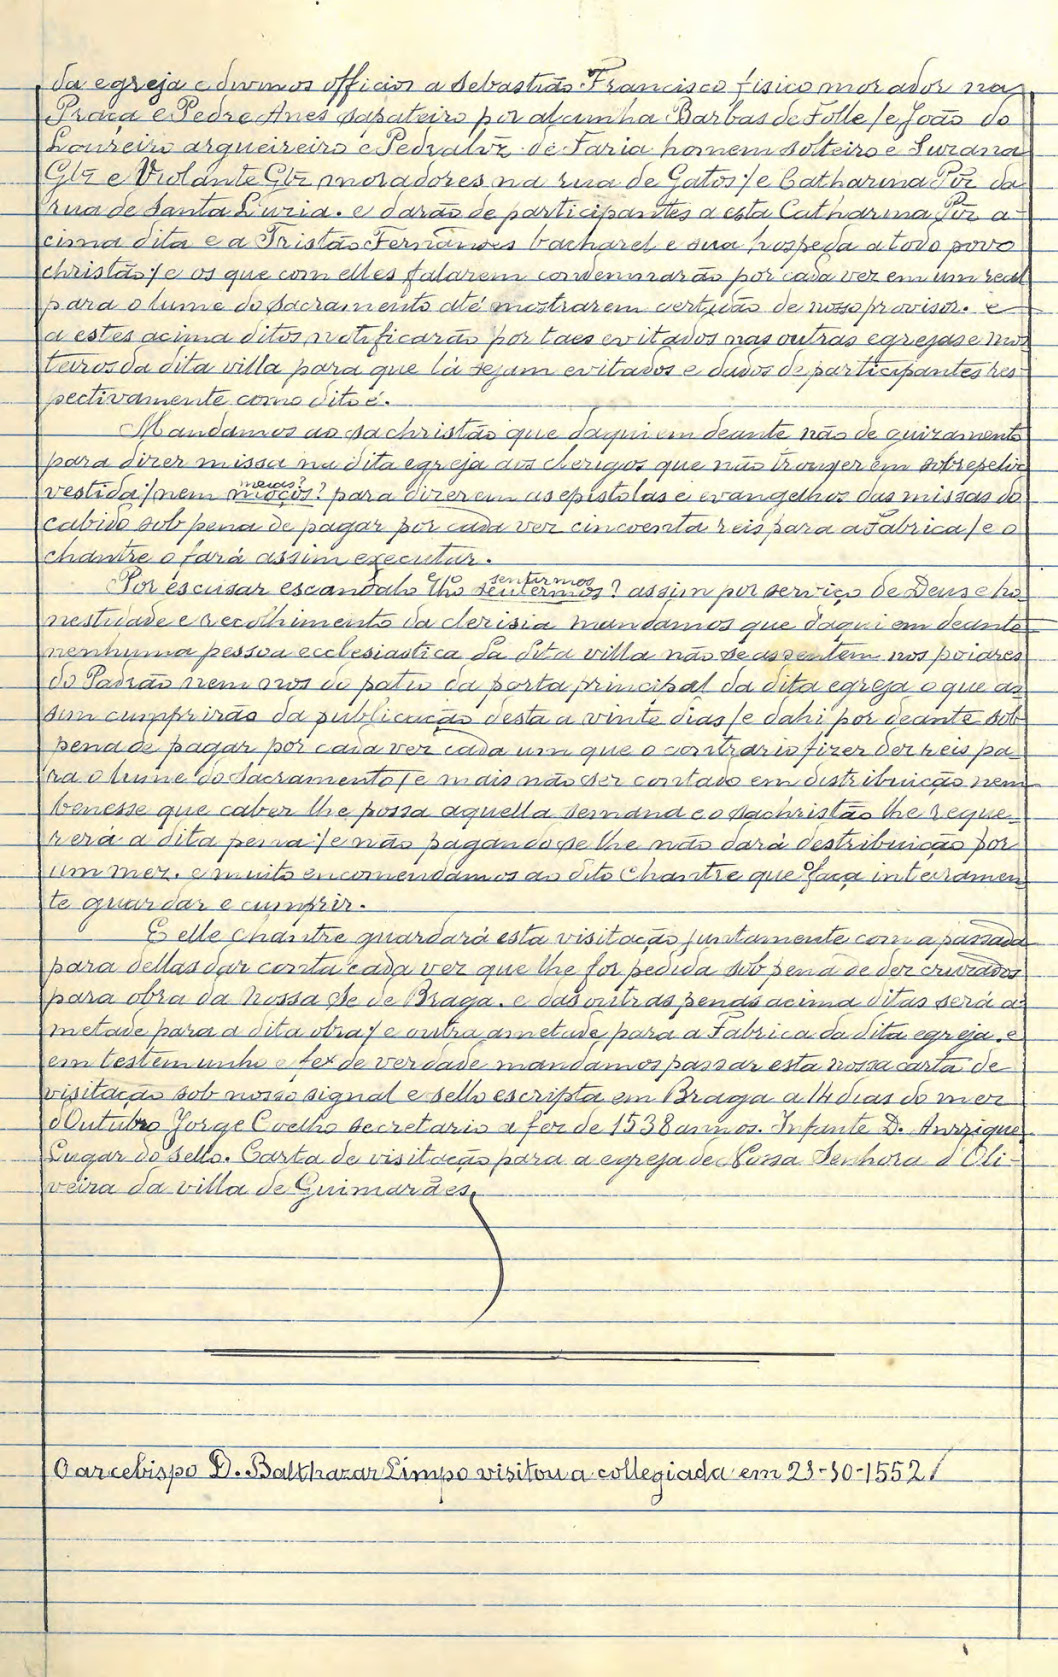 da egreja e divinos officios a Sebastião Francisco físico morador na
Praça e Pedre Anes sapateiro por alcunha Barbas de Folle / e João do
Loureiro argueireiro e Pedralvz de Faria homem solteiro e Surana
Glz e Violante Glz moradores na rua de Gatos / e Catharina Piz da
rua de Santa Luzia. e darão de participantes a esta Catharina Piz a-
cima dita e a Tristão Fernandes bacharel e sua hospeda a todo povo
christão / e os que com elles falarem condemnarão por cada vez em um real
para o lume do Sacramento até mostrarem certidão de nosso provisor. e
a estes acima ditos notificarão por taes evitados nas outras egrejas e mos
teiros da dita villa para que lá sejam evitados e dados de participantes res-
pectivamente como dito é.
Mandamos ao sachristão que daqui em deante não de guizamento
para dizer missa na dita egreja aos clerigos que não trouxerem sobrepeliz
vestida / nem moços? para dizerem as epistolas e evangelhos das missas do
meias?
cabido sob pena de pagar por cada vez cincoenta reis para a Fabrica / e o
chantre o fará assim executar.
Por escusar escandalo e lho sentermos? assim por serviço de Deus e ho
sentirmos
nestidade e recolhimento da clerisia mandamos que daqui em deante
nenhuma pessoa ecclesiastica da dita villa não se assentem nos poiares
do Padrão nem nos do patio da porta principal da dita egreja o que as-
sim cumprirão da publicação desta a vinte dias / e dahi por deante sob
pena de pagar por cada vez cada um que o contrario fizer dez reis pa-
ra o lume do Sacramento / e mais não ser contado em distribuição nem
benesse que caber lhe possa aquella semana e o sachristão lhe reque-
rerá a dita pena / e não pagando se lhe não dará destribuição por
um mez. e muito encomendamos ao dito Chantre que o faça inteiramen
te guardar e cumprir.
E elle chantre guardará esta visitação juntamente com a passada
para dellas dar conta cada vez que lhe for pedida sob pena de dez cruzados
para obra da nossa Se de Braga. e das outras penas acima ditas será a
metade para a dita obra / e outra ametade para a Fabrica da dita egreja. e
em testemunho e fex de verdade mandamos passar esta nossa carta de
visitação sob nosso signal e sello escripta em Braga a 14 dias do mez
d'Outubro Jorge Coelho secretario a fez de 1538 annos. Infante D. Anrrique
Lugar do sello. Carta de visitação para a egreja de Nossa Senhora d'Oli-
veira da villa de Guimarães.
O arcebispo D. Balthazar Limpo visitou a collegiada em 23-10-1552